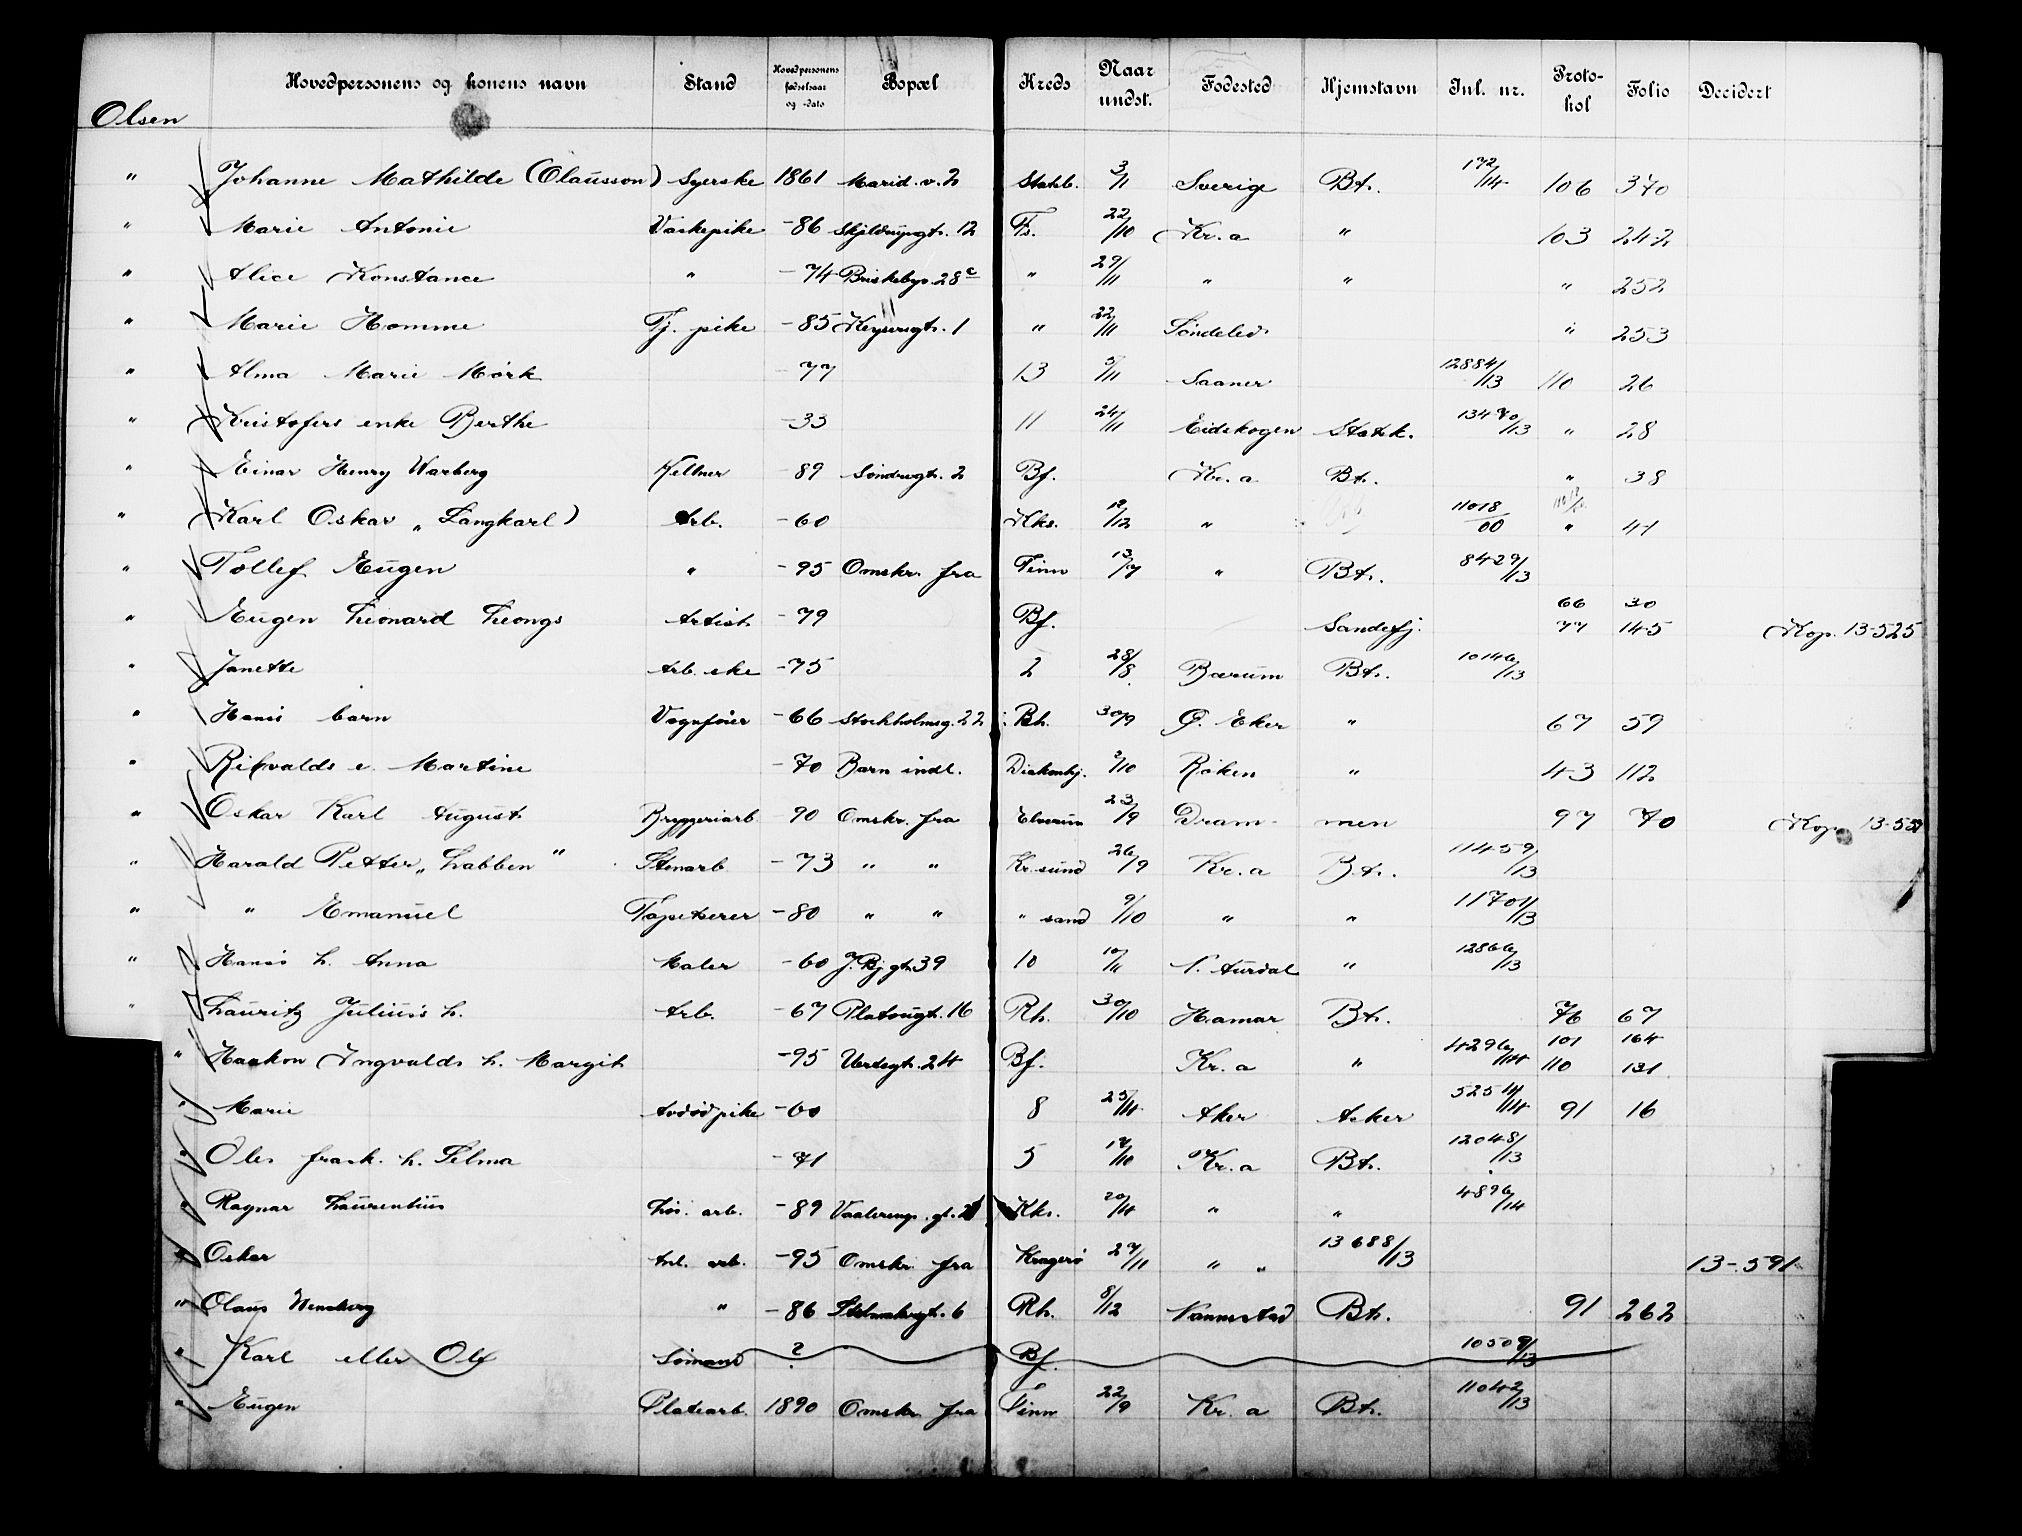 Hovedpersonens og konens navn Stand Hovedpersonens fødselsaar og -dato Bopæl Kreds Naar undst. Fødested Hjemstavn Inl. nr. Protokol Folio Decidert
Olsen
" Johanne Mathilde (Olausson) Syerske 1861 Marid. v. 2 Stakb. 3/1 Sverige Bt. 172/14 106 370
" Marie Antonie Vaskepike -86 12 Fs. 22/10 Kr.a " 103 242
" Alice Konstance " -74 Briskebyv. 28c " 29/11 " " " 252
" Marie Homme Tj. pike -85 Keysersgt. 1 " 22/11 Søndeled " 253
" Alma Marie Mørk -77 13 5/11 Saaner 12884/13 110 26
" Kristofers enke Berthe -33 11 24/11 Eidskogen Statsk. 13470/13 " 28
" Einar Henry Warberg Kellner -89 Søndregt. 2 Bf. Kr.a Bt. " 38
" Karl Oskar „Langkarl) Arb. -60 Kks. 12/12 " 11018/00 " 41
" Tollef Eugen " -95 Omskr. fra Finn 13/7 " Bt. 8429/13
" Eugen Leonard Leongs Artist -79 Bf. Sandefj. 66 30 77 145 Kop. 13-525
" Janette Arb. ske -75 2 28/8 Bærum Bt. 10146/13
" Hans's barn Vognfører -66 Stockholmsg. 22 Bh. 30/9 Ø. Eker " 67 59
" Martine -70 Barn indl. Diakonhj. 2/10 Røken " 43 112
" Oskar Karl August Bryggeriarb -90 Omskr. fra Elverum 23/9 Drammen 97 70 Kop.
" Harald Petter „Labben" Stenarb. -73 " " Kr.sund 26/9 Kr.a Bt. 11459/13
" " Emanuel Tapetserer -80 " " " sand 9/10 " " 11701/13
" Hans's h. Anna Maler -60 J. Bj gt. 39 10 10/11 N. Aurdal " 12866/13
" Lauritz Julius's h. Arb. -67 Platougt. 16 Rh. 30/10 Hamar Bt. 76 67
" Haakon Ingvalds h. Margit -95 Urdsgt. 24 Bf. Kr.a " 4296/14 101 164 110 131
" Marie -60 8 25/4 Aker Asker 5254/14 91 16
" Oles frask. h. Selma -71 5 17/10 Kr.a Bt. 12048/13
" Ragnar Laurentius Løs. arb. -89 Vaalereng. gt. Kks. 20/4 " " 4896/14
" Oskar Anl. arb. -95 Omskr. fra Kragerø 27/11 " " 13688/13 13-591
" Olaus -86 6 Rh. 8/12 Bt. 91 262
" Karl eller Ole Sømand ? Bf. 10509/13
" Eugen Platearb. 1890 Omskr. fra Finn 22/9 Kr.a Bt. 11042/13